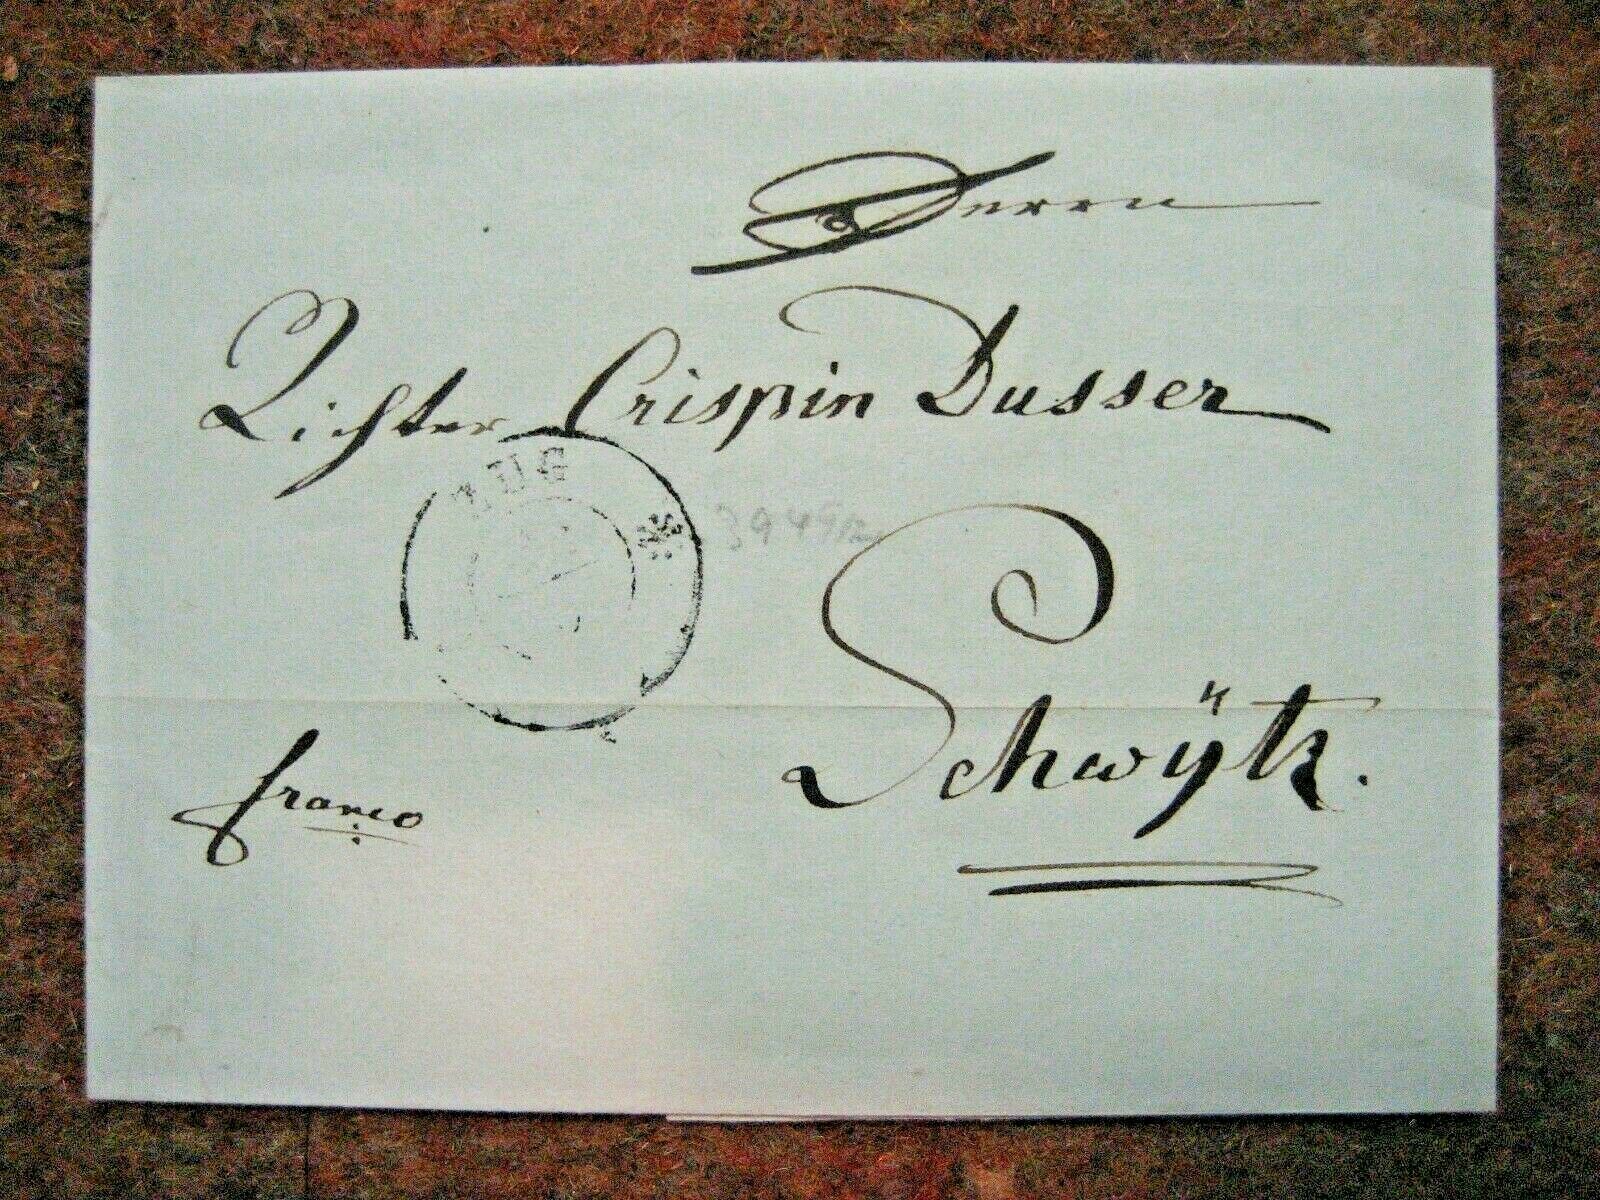 Herrn
Richter Crispin Dusser
ZUG
Schwÿtz.
franco